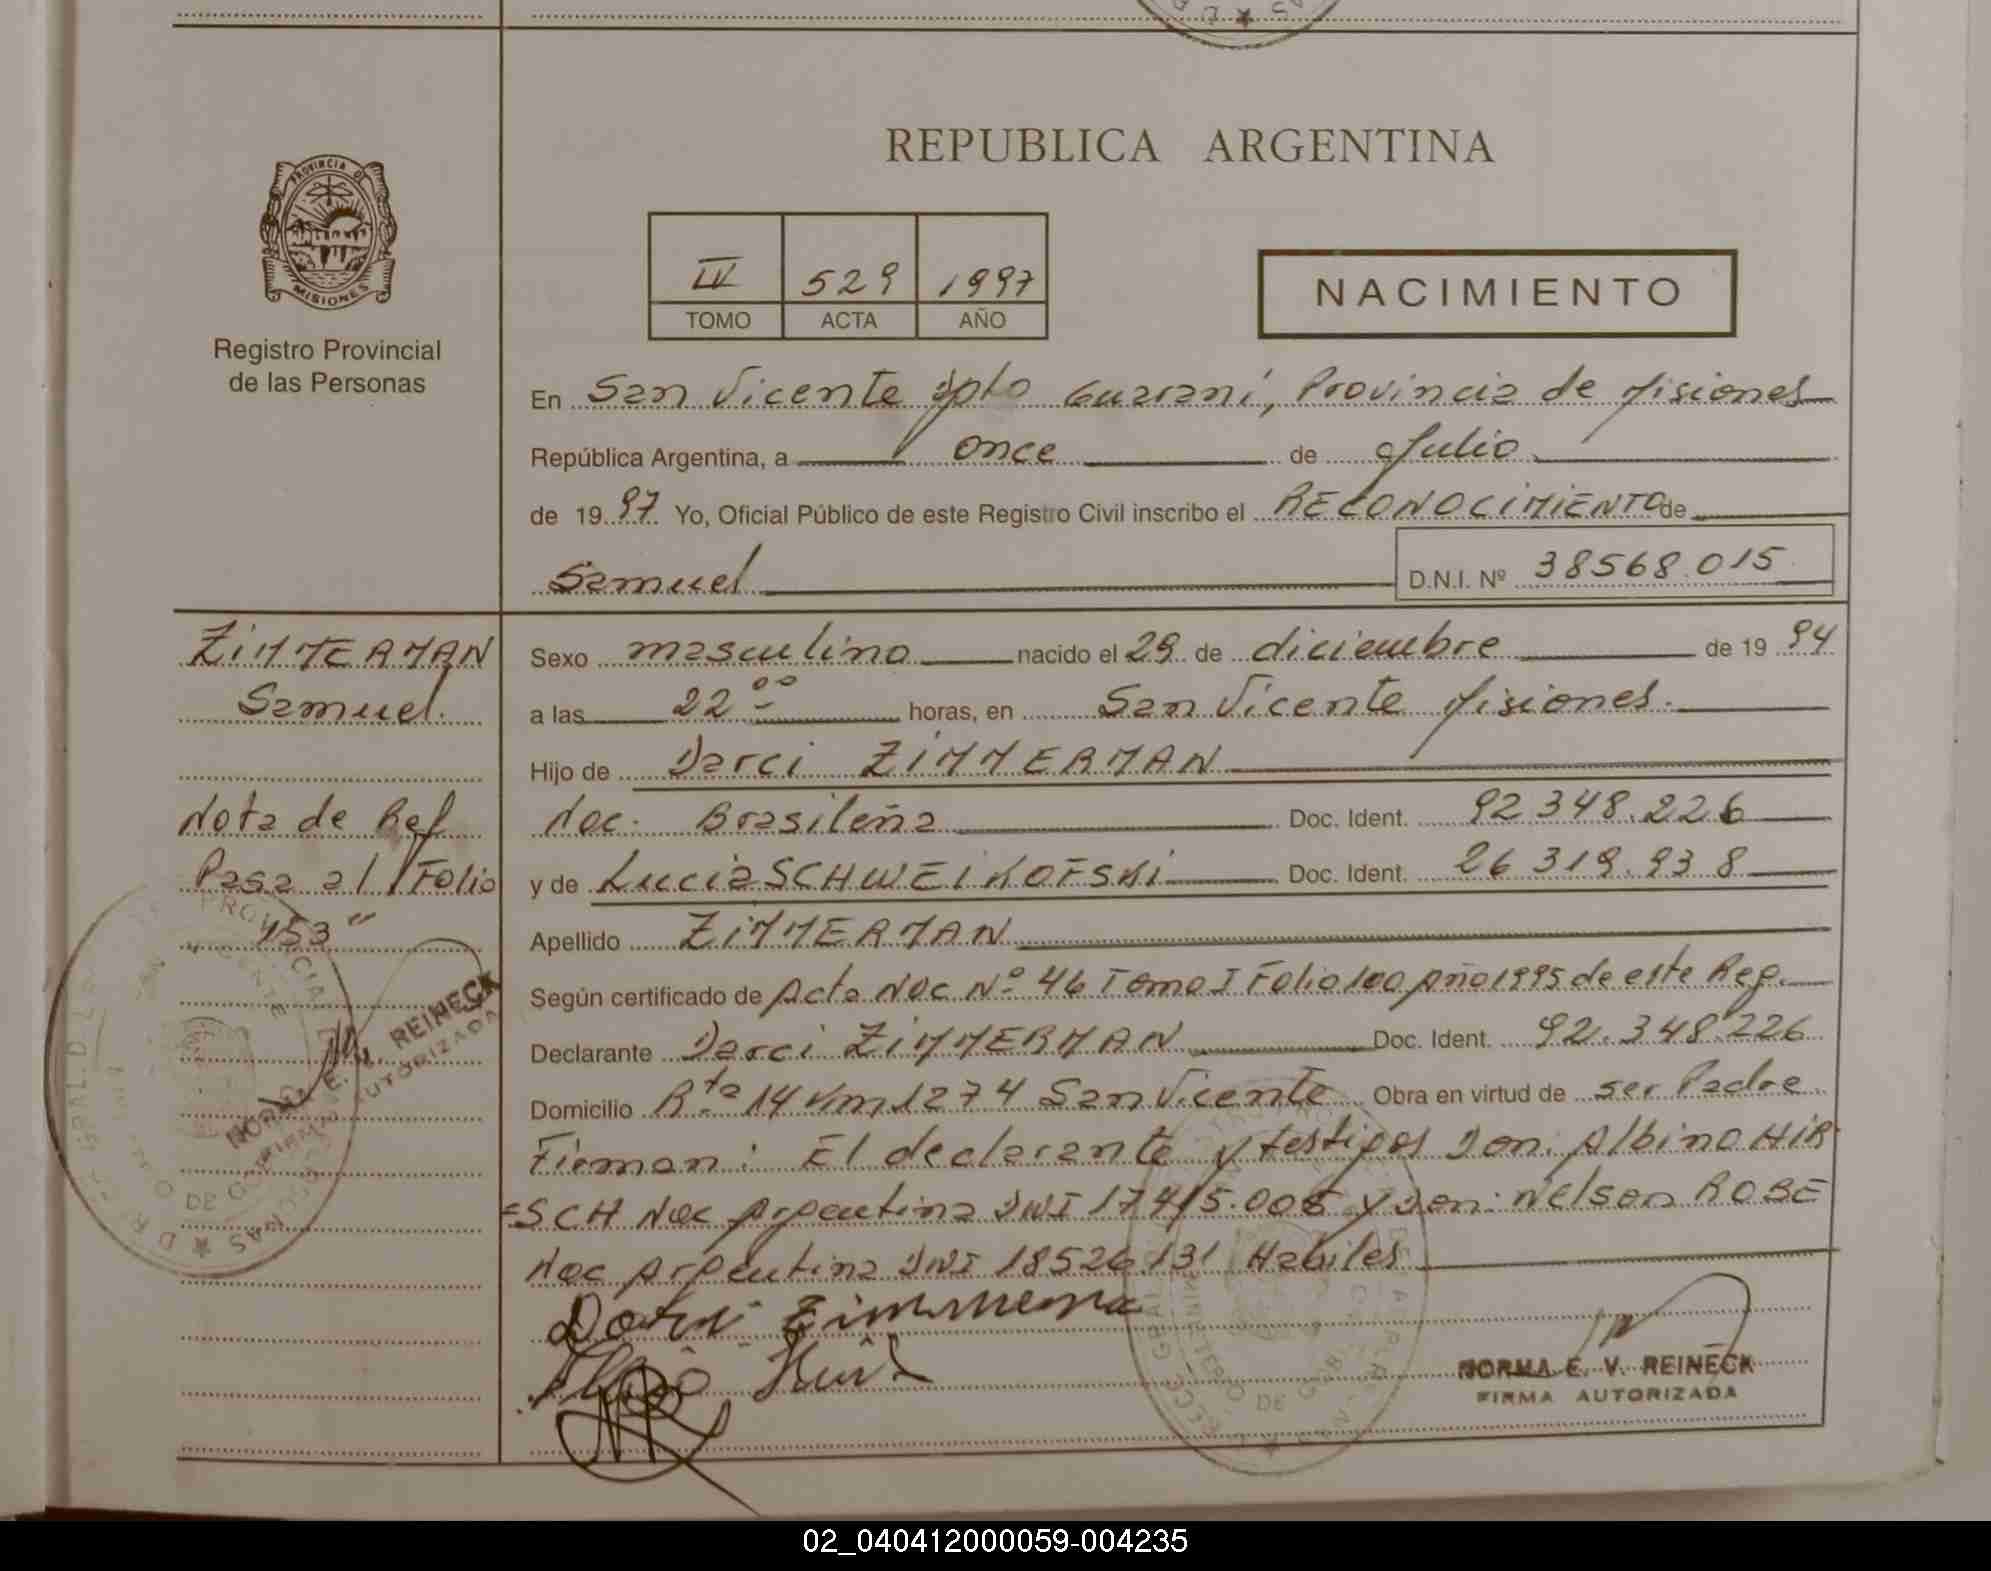 REPUBLICA ARGENTINA
PROVINCIA DE
MISIONES
Registro Provincial
de las Personas
IV 529 1997
TOMO ACTA AÑO
NACIMIENTO
En San Vicente Dpto Guaraní, Provincia de Misiones
República Argentina, a once de Julio
de 1997 Yo, Oficial Público de este Registro Civil inscribo el RECONOCIMIENTO de
Samuel D.N.I. Nº 38568.015
ZIMMERMAN
Samuel.
Nota de Ref
Pasa al Folio
453"
NORMA E. V. REINECK
FIRMA AUTORIZADA
Sexo masculino nacido el 29 de diciembre de 1994
a las 22 ºº horas, en San Vicente Misiones.
Hijo de Darci ZIMMERMAN
Nac. Brasileña Doc. Ident. 92.348.226
y de Lucia SCHWEIKOFSKI Doc. Ident. 26.319.938
Apellido ZIMMERMAN
Según certificado de Acta Nac Nº 46 Tomo I Folio 100 Año 1995 de este Reg.
Declarante Darci ZIMMERMAN Doc. Ident. 92.348.226
Domicilio Rta 14 Km 1274 San Vicente Obra en virtud de ser Padre
Firman: El declarante y testigos Don: Albino HIR
=SCH Nac Argentina DNI 17415.006 y Don: Nelson ROSE
Nac Argentina DNI 18526.131 Habiles
NORMA E. V. REINECK
FIRMA AUTORIZADA
02_040412000059-004235